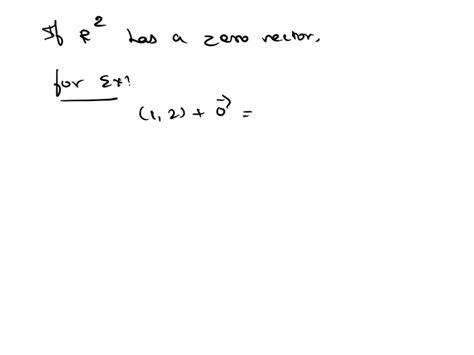 If R² has a zero vector.
for Ex:
(1, 2) + 0⃗ =